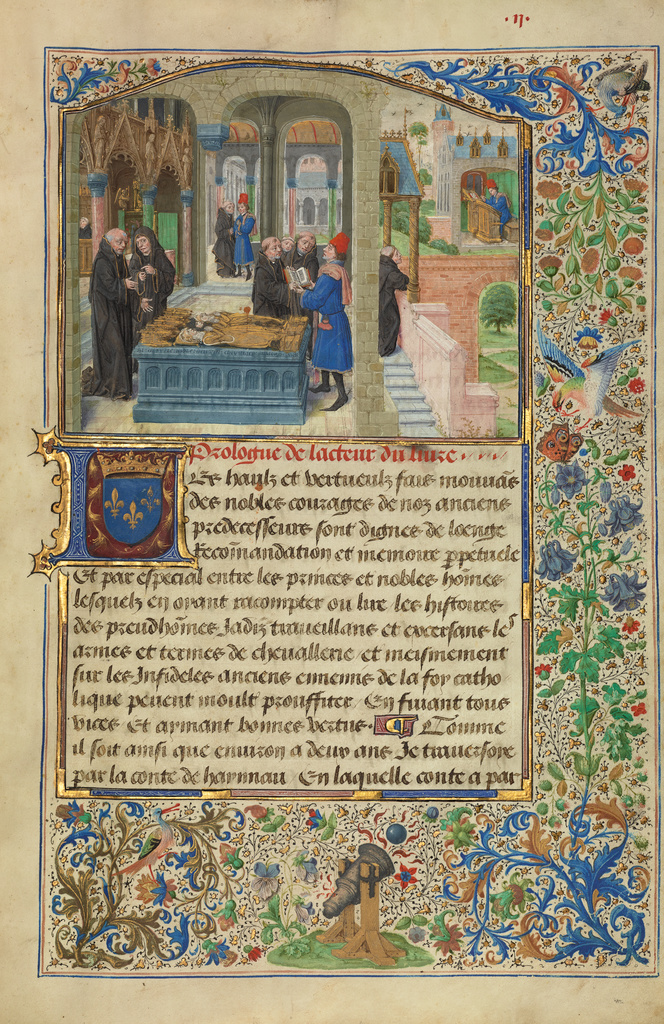 ·ɪɪ·
Prologue de lacteur du liure
Les haulz et vertueulz fais mouuãs
des nobles courages de noz anciens
predecesseurs sont dignes de loenge
Recõmandation et memoire ꝑpetuele
Et par especial entre les princes et nobles hõmes
lesquelz en oyant racompter ou lire les histoires
des preudhõmes Jadiz trauueillans et excersans les
armes et termes de cheuallerie et meismement
sur les Infideles anciens ennemis de la foy catho
lique peuent moult prouffiter En fuiant tous
vices Et aymant bonnes vertus· Comme
il soit ainsi que enuiron a deux ans Je trauersoie
par la conte de haynnau En laquelle conte a par